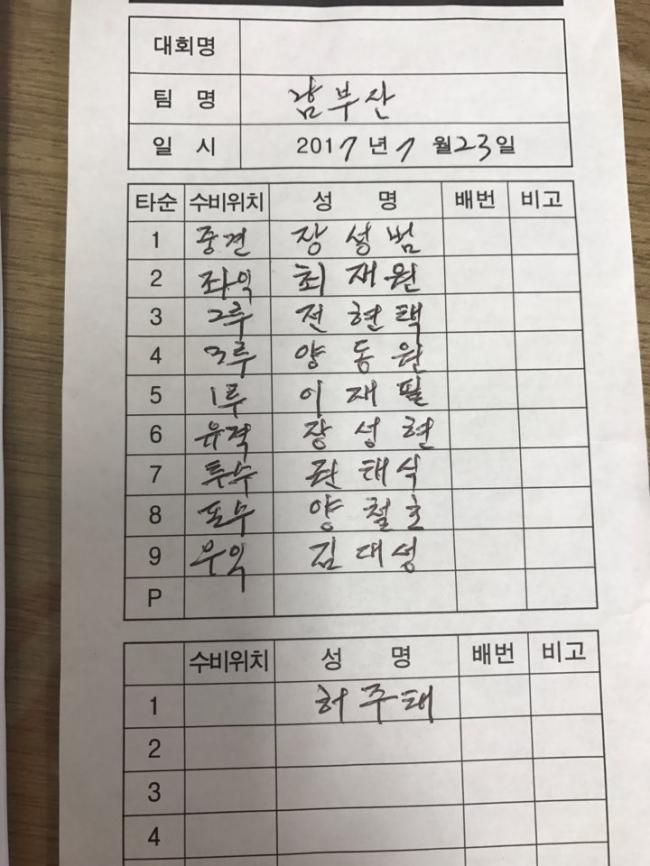 대회명
팀 명 람부산
일 시 2017년 7월 23일
타순 수비위치 성 명 배번 비고
1 중견 장성범
2 좌익 최재원
3 2루 전현택
4 3루 양동원
5 1루 이재필
6 유격 장성현
7 투수 권태식
8 포수 양철호
9 우익 김대성
P
수비위치 성 명 배번 비고
1 허주태
2
3
4